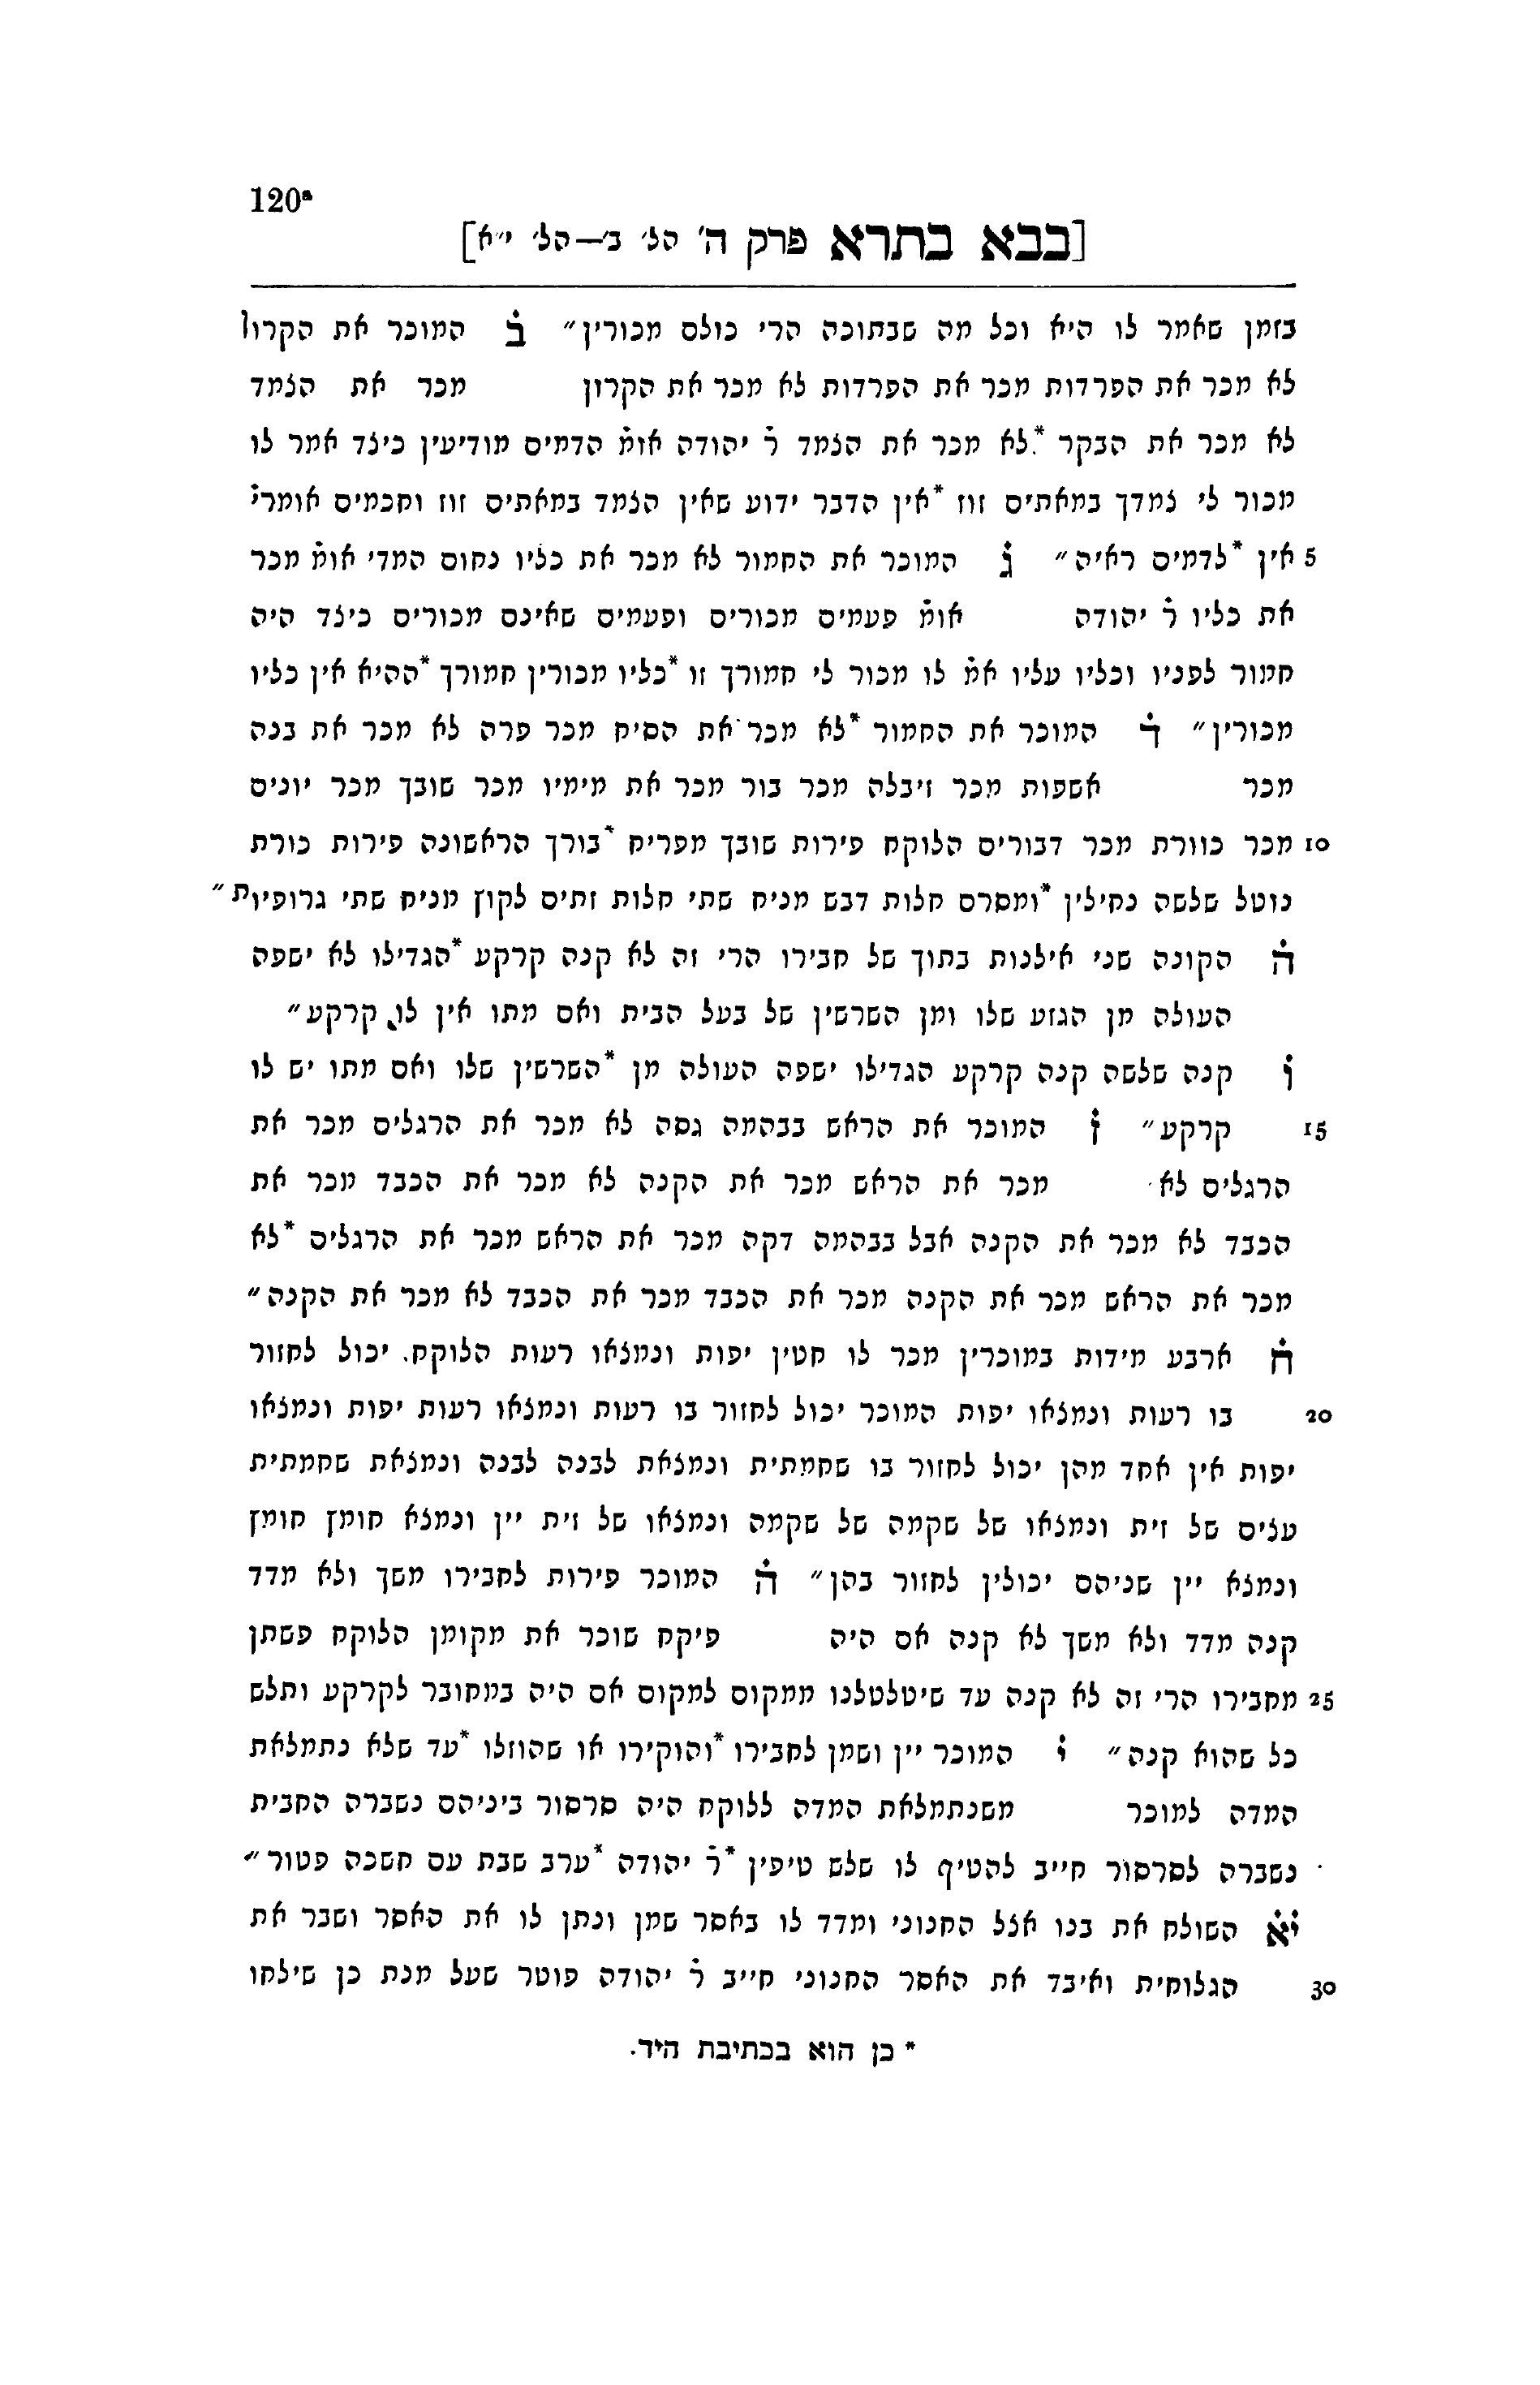 120ª
[בבא בתרא פרק ה' הל' ב'—הל' י״א]
בזמן שאמר לו היא וכל מה שבתוכה הרי כולם מכורין״ בׄ המוכר את הקרון
לא מכר את הפרדות מכר את הפרדות לא מכר את הקרון מכר את הצמד
לא מכר את הבקר *.לא מכר את הצמד רׄ יהודה אומׄ הדמים מודיעין כיצד אמר לו
מכור לי צמדך במאתים זוז *אין הדבר ידוע שאין הצמד במאתים זוז וחכמים אומריׄ
5 אין *לדמים ראיה״ גׄ המוכר את החמור לא מכר את כליו נחום המדי אומׄ מכר
את כליו רׄ יהודה אומׄ פעמים מכורים ופעמים שאינם מכורים כיצד היה
חמור לפניו וכליו עליו אמׄ לו מכור לי חמורך זו *כליו מכורין חמורך *ההיא אין כליו
מכורין״ דׄ המוכר את החמור *לא מכר את הסיח מכר פרה לא מכר את בנה
מכר אשפות מכר זיבלה מכר בור מכר את מימיו מכר שובך מכר יונים
10 מכר כוורת מכר דבורים הלוקח פירות שובך מפריח *בורך הראשונה פירות כורת
נוטל שלשה נחילין *ומסרם חלות דבש מניח שתי חלות זתים לקוץ מניח שתי גרופיות״
הׄ הקונה שני אילנות בתוך של חבירו הרי זה לא קנה קרקע *הגדילו לא ישפה
העולה מן הגזע שלו ומן השרשין של בעל הבית ואם מתו אין לו קרקע״
וׄ קנה שלשה קנה קרקע הגדילו ישפה העולה מן *השרשין שלו ואם מתו יש לו
15 קרקע״ זׄ המוכר את הראש בבהמה גסה לא מכר את הרגלים מכר את
הרגלים לא מכר את הראש מכר את הקנה לא מכר את הכבד מכר את
הכבד לא מכר את הקנה אבל בבהמה דקה מכר את הראש מכר את הרגלים *לא
מכר את הראש מכר את הקנה מכר את הכבד מכר את הכבד לא מכר את הקנה״
חׄ ארבע מידות במוכרין מכר לו חטין יפות ונמצאו רעות הלוקח. יכול לחזור
20 בו רעות ונמצאו יפות המוכר יכול לחזור בו רעות ונמצאו רעות יפות ונמצאו
יפות אין אחד מהן יכול לחזור בו שחמתית ונמצאת לבנה לבנה ונמצאת שחמתית
עצים של זית ונמצאו של שקמה של שקמה ונמצאו של זית יין ונמצא חומץ חומץ
ונמצא יין שניהם יכולין לחזור בהן״ הׄ המוכר פירות לחבירו משך ולא מדד
קנה מדד ולא משך לא קנה אם היה פיקח שוכר את מקומן הלוקח פשתן
25 מחבירו הרי זה לא קנה עד שיטלטלנו ממקום למקום אם היה במחובר לקרקע ותלש
כל שהוא קנה״ יׄ המוכר יין ושמן לחבירו *והוקירו או שהוזלו *עד שלא נתמלאת
המדה למוכר משנתמלאת המדה ללוקח היה סרסור ביניהם נשברה החבית
נשברה לסרסור חייב להטיף לו שלש טיפין *רׄ יהודה *ערב שבת עם חשכה פטור״
יׄאׄ השולח את בנו אצל החנוני ומדד לו באסר שמן ונתן לו את האסר ושבר את
30 הצלוחית ואיבד את האסר החנוני חייב רׄ יהודה פוטר שעל מנת כן שילחו
* כן הוא בכתיבת היד.